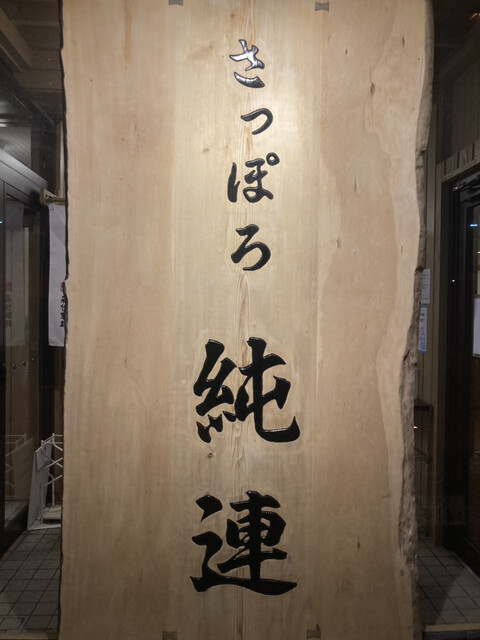 さっぽろ純連